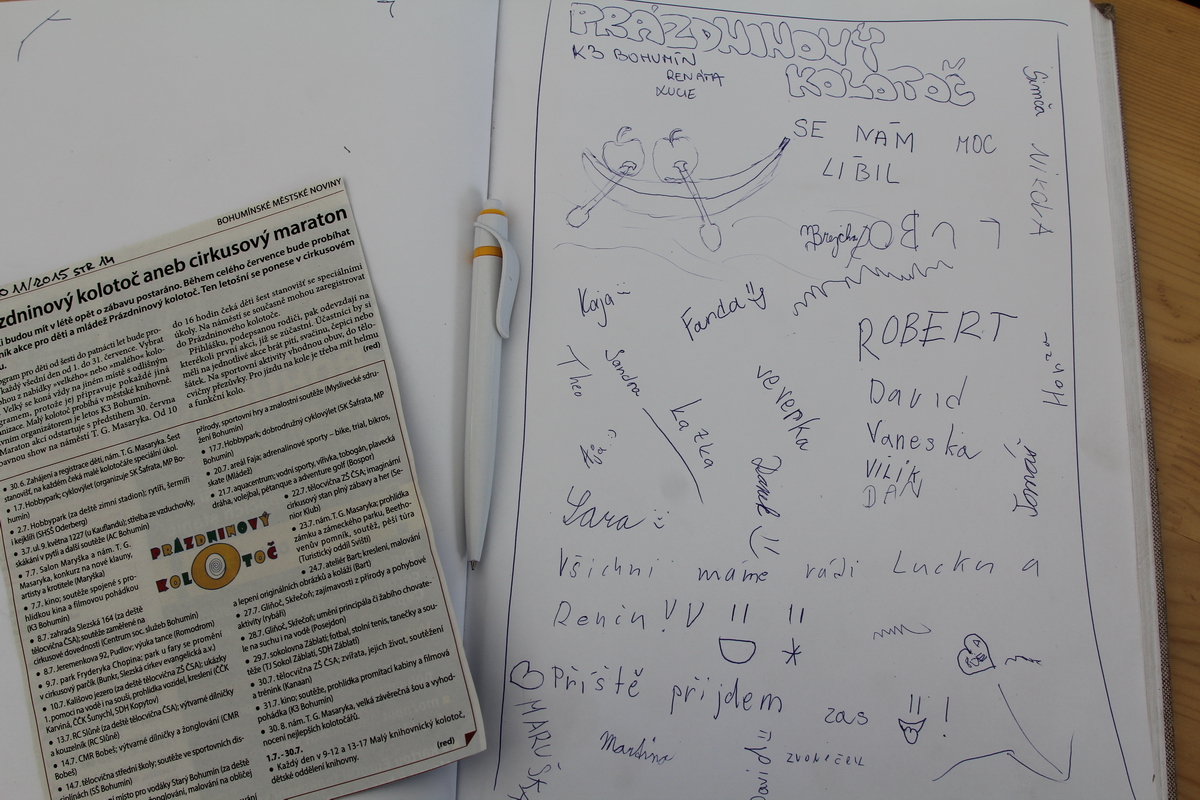 BOHUMÍNSKÉ MĚSTSKÉ NOVINY
11/2015 STR 14
zdninový kolotoč aneb cirkusový maraton
i budou mít v létě opět o zábavu postaráno. Během celého července bude probíhat
ník akce pro děti a mládež Prázdninový kolotoč. Ten letošní se ponese v cirkusovém
ogram pro děti od šesti do patnácti let bude pro-
každý všední den od 1. do 31. července. Vybrat
ohou z nabídky »velkého« nebo »malého« kolo-
Velký se koná vždy na jiném místě s odlišným
gramem, protože jej připravuje pokaždé jiná
nizace. Malý kolotoč probíhá v městské knihovně.
vním organizátorem je letos K3 Bohumín.
Maraton akcí odstartuje s předstihem 30. června
bavnou show na náměstí T. G. Masaryka. Od 10
do 16 hodin čeká děti šest stanovišť se speciálními
úkoly. Na náměstí se současně mohou zaregistrovat
do Prázdninového kolotoče.
Přihlášku, podepsanou rodiči, pak odevzdají na
kterékoli první akci, jíž se zúčastní. Účastníci by si
měli na jednotlivé akce brát pití, svačinu, čepici nebo
šátek. Na sportovní aktivity vhodnou obuv, do tělo-
cvičny přezůvky. Pro jízdu na kole je třeba mít helmu
a funkční kolo.
(red)
• 30.6. Zahájení a registrace dětí, nám. T. G. Masaryka. Šest
stanovišť, na každém čeká malé kolotočáře speciální úkol.
• 1.7. Hobbypark; cyklovýlet (organizuje SK Šafrata, MP Bo-
humín)
• 2.7. Hobbypark (za deště zimní stadion); rytíři, šermíři
i kejklíři (SHŠS Oderberg)
• 3.7. ul. 9. května 1227 (u Kauflandu); střelba ze vzduchovky,
skákání v pytli a další soutěže (AC Bohumín)
• 7.7. Salon Maryška a nám. T. G.
Masaryka, konkurz na nové klauny,
artisty a krotitele (Maryška)
• 7.7. kino; soutěže spojené s pro-
hlídkou kina a filmovou pohádkou
(K3 Bohumín)
• 8.7. zahrada Slezská 164 (za deště
tělocvična ČSA); soutěže zaměřené na
cirkusové dovednosti (Centrum soc. služeb Bohumín)
• 8.7. Jeremenkova 92, Pudlov; výuka tance (Romodrom)
• 9.7. park Fryderyka Chopina; park u fary se promění
v cirkusový parčík (Bunkr, Slezská církev evangelická a.v.)
• 10.7. Kališovo jezero (za deště tělocvična ZŠ ČSA); ukázky
1. pomoci na vodě i na souši, prohlídka vozidel, kreslení (ČČK
Karviná, ČČK Šunychl, SDH Kopytov)
• 13.7. RC Slůně (za deště tělocvična ZŠ ČSA); výtvarné dílničky
a kouzelník (RC Slůně)
• 14.7. CMR Bobeš; výtvarné dílničky a žonglování (CMR
Bobeš)
• 14.7. tělocvična střední školy; soutěže ve sportovních dis-
ciplínách (SŠ Bohumín)
místo pro vodáky Starý Bohumín (za deště
žonglování, malování na obličej
PRÁZDNINOVÝ
KOLOTOČ
přírody, sportovní hry a znalostní soutěže (Myslivecké sdru-
žení Bohumín)
• 17.7. Hobbypark; dobrodružný cyklovýlet (SK Šafrata, MP
Bohumín)
• 20.7. areál Faja; adrenalinové sporty – bike, trial, bikros,
skate (Mládež)
• 21.7. aquacentrum; vodní sporty, vířivka, tobogán, plavecká
dráha, volejbal, pétanque a adventure golf (Bospor)
• 22.7. tělocvična ZŠ ČSA; imaginární
cirkusový stan plný zábavy a her (Se-
nior Klub)
• 23.7. nám. T. G. Masaryka; prohlídka
zámku a zámeckého parku, Beetho-
venův pomník, soutěž, pěší túra
(Turistický oddíl Svišti)
• 24.7. ateliér Bart; kreslení, malování
a lepení originálních obrázků a koláží (Bart)
• 27.7. Gliňoč, Skřečoň; zajímavosti z přírody a pohybové
aktivity (rybáři)
• 28.7. Gliňoč, Skřečoň; umění principála či žabího chovate-
le na suchu i na vodě (Posejdon)
• 29.7. sokolovna Záblatí; fotbal, stolní tenis, tanečky a sou-
těže (TJ Sokol Záblatí, SDH Záblatí)
• 30.7. tělocvična ZŠ ČSA; zvířata, jejich život, soutěžení
a trénink (Kanaan)
• 31.7. kino; soutěže, prohlídka promítací kabiny a filmová
pohádka (K3 Bohumín)
• 30. 8. nám. T. G. Masaryka, velká závěrečná šou a vyhod-
nocení nejlepších kolotočářů.
1.7. - 30.7.
• Každý den v 9-12 a 13-17 Malý knihovnický kolotoč,
dětské oddělení knihovny.
(red)
PRÁZDNINOVÝ
KOLOTOČ
K3 BOHUMÍN
RENÁTA
LUCIE
SE NÁM MOC
LÍBIL
Simča
NIKČA
Brejcha
Kaja
Fanda
ROBERT
Honza
Theo
Sandra
Kazka
Veverka
David
Vaneska
VILÍK
DAN
Tomáš
Sara
Všichni máme rádi Lucku a
Renin!
Příště přijdem zas !
MARUŠKA
Martina
ZVONÍČEK